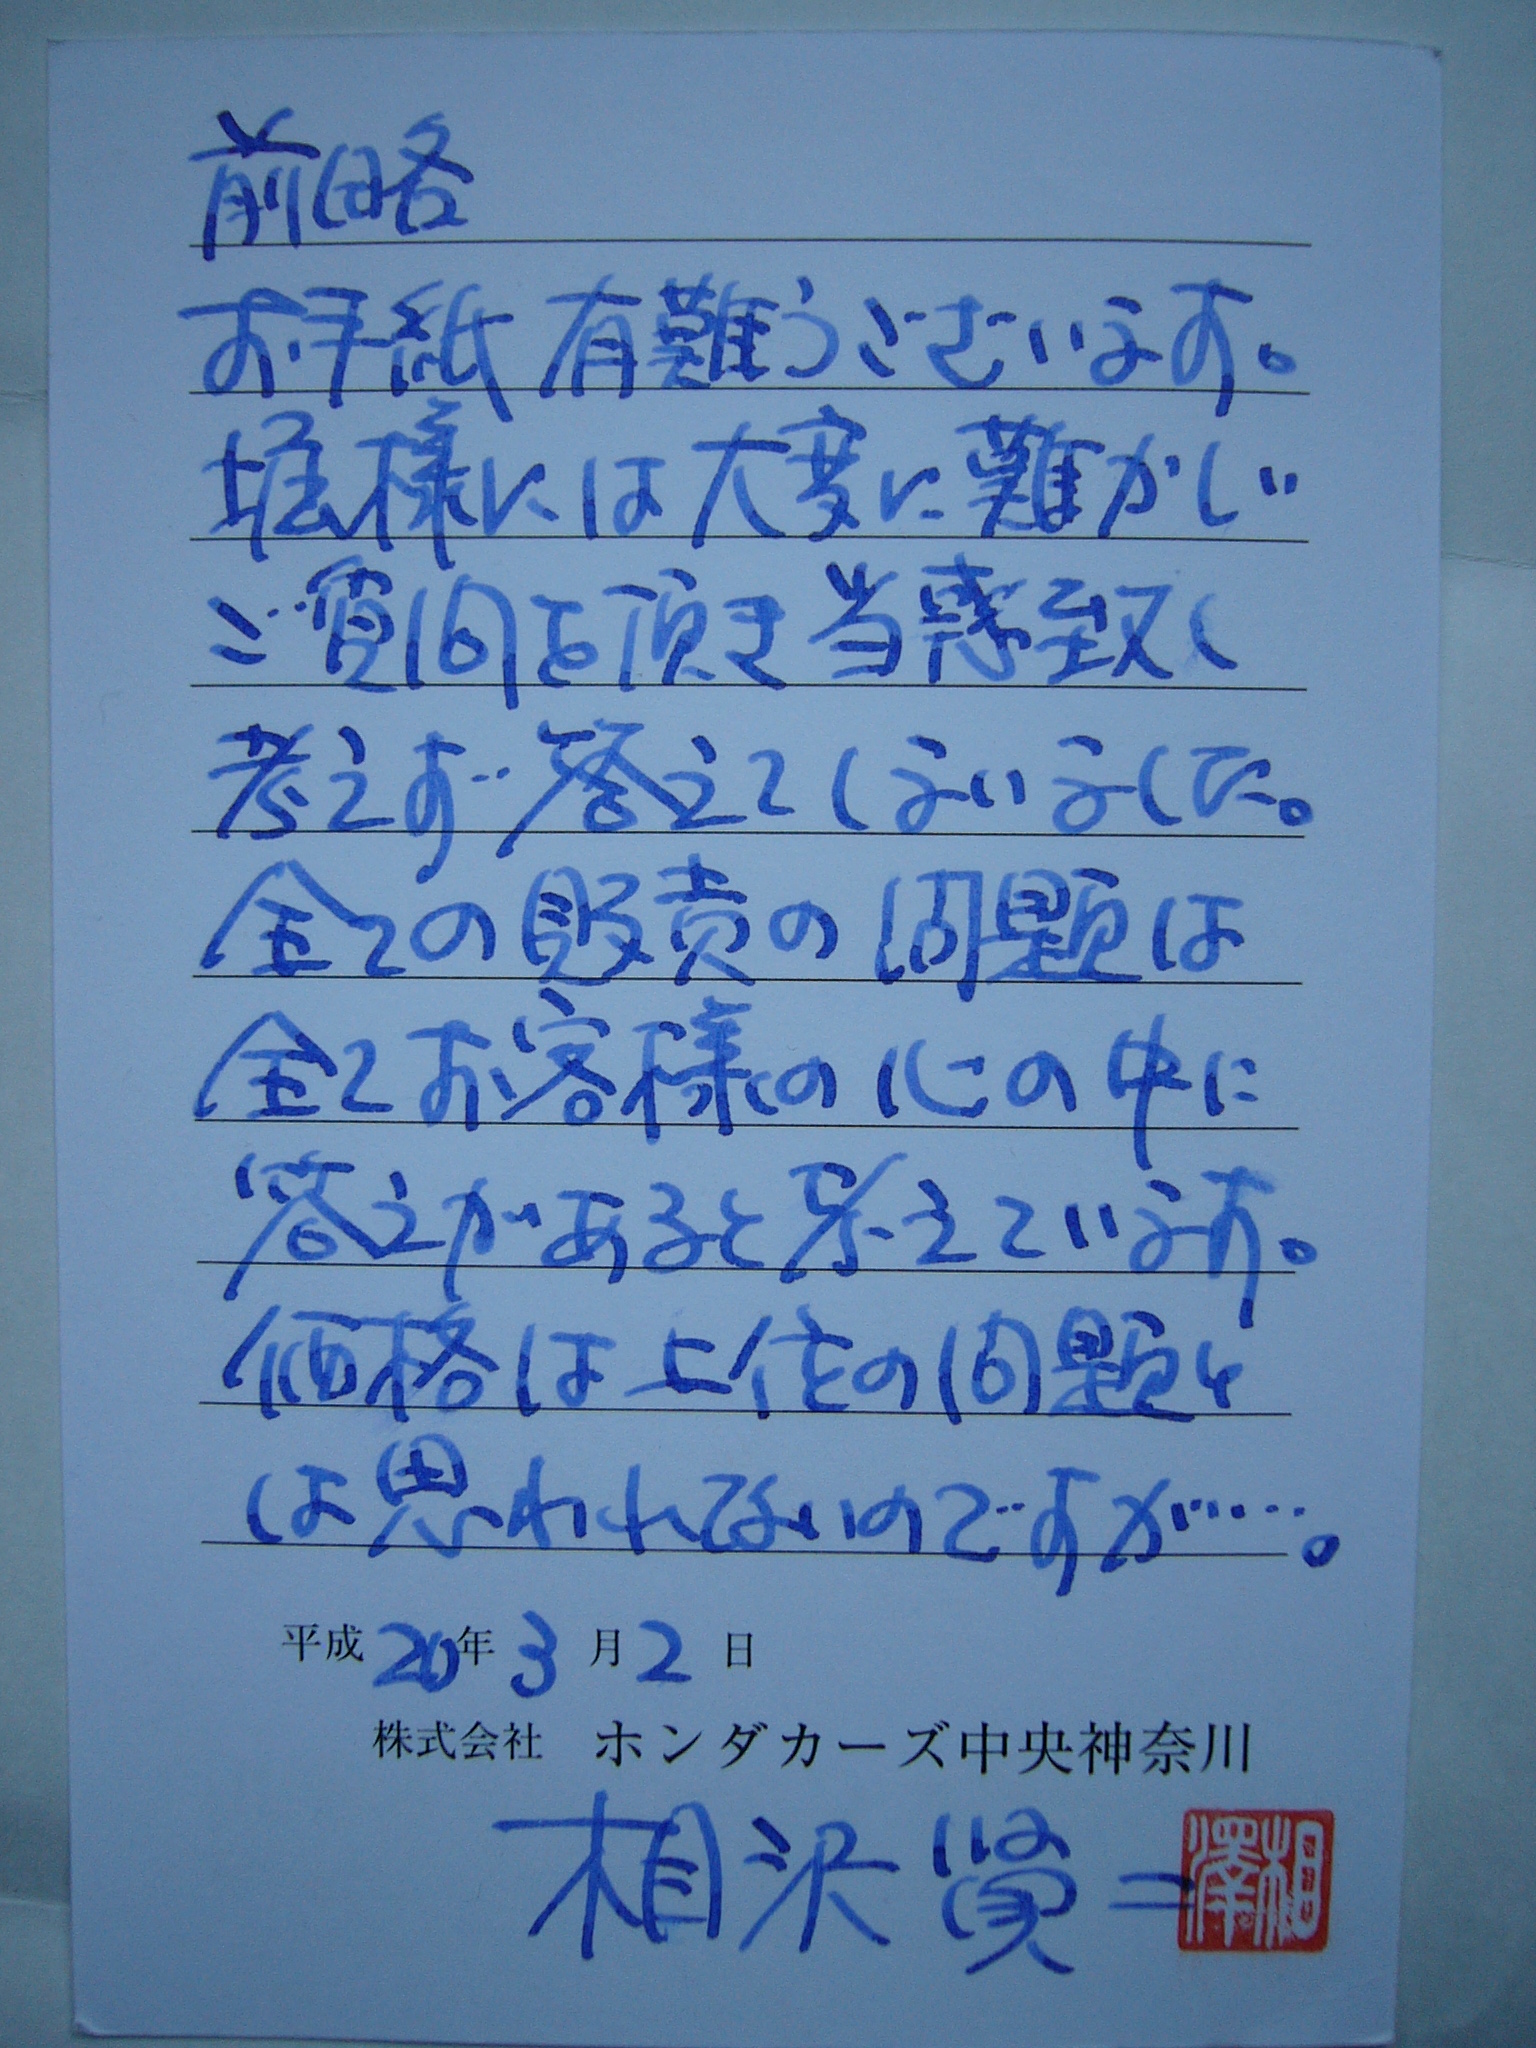 前略
お手紙有難うございます。
堀様には大変に難かしい
ご質問を頂き当惑致し
考えず答えてしまいました。
全ての販売の問題は
全てお客様の心の中に
答えがあると考えています。
価格は上位の問題と
は思われてないのですが……。
平成20年3月2日
株式会社 ホンダカーズ中央神奈川
相沢賢二
相澤